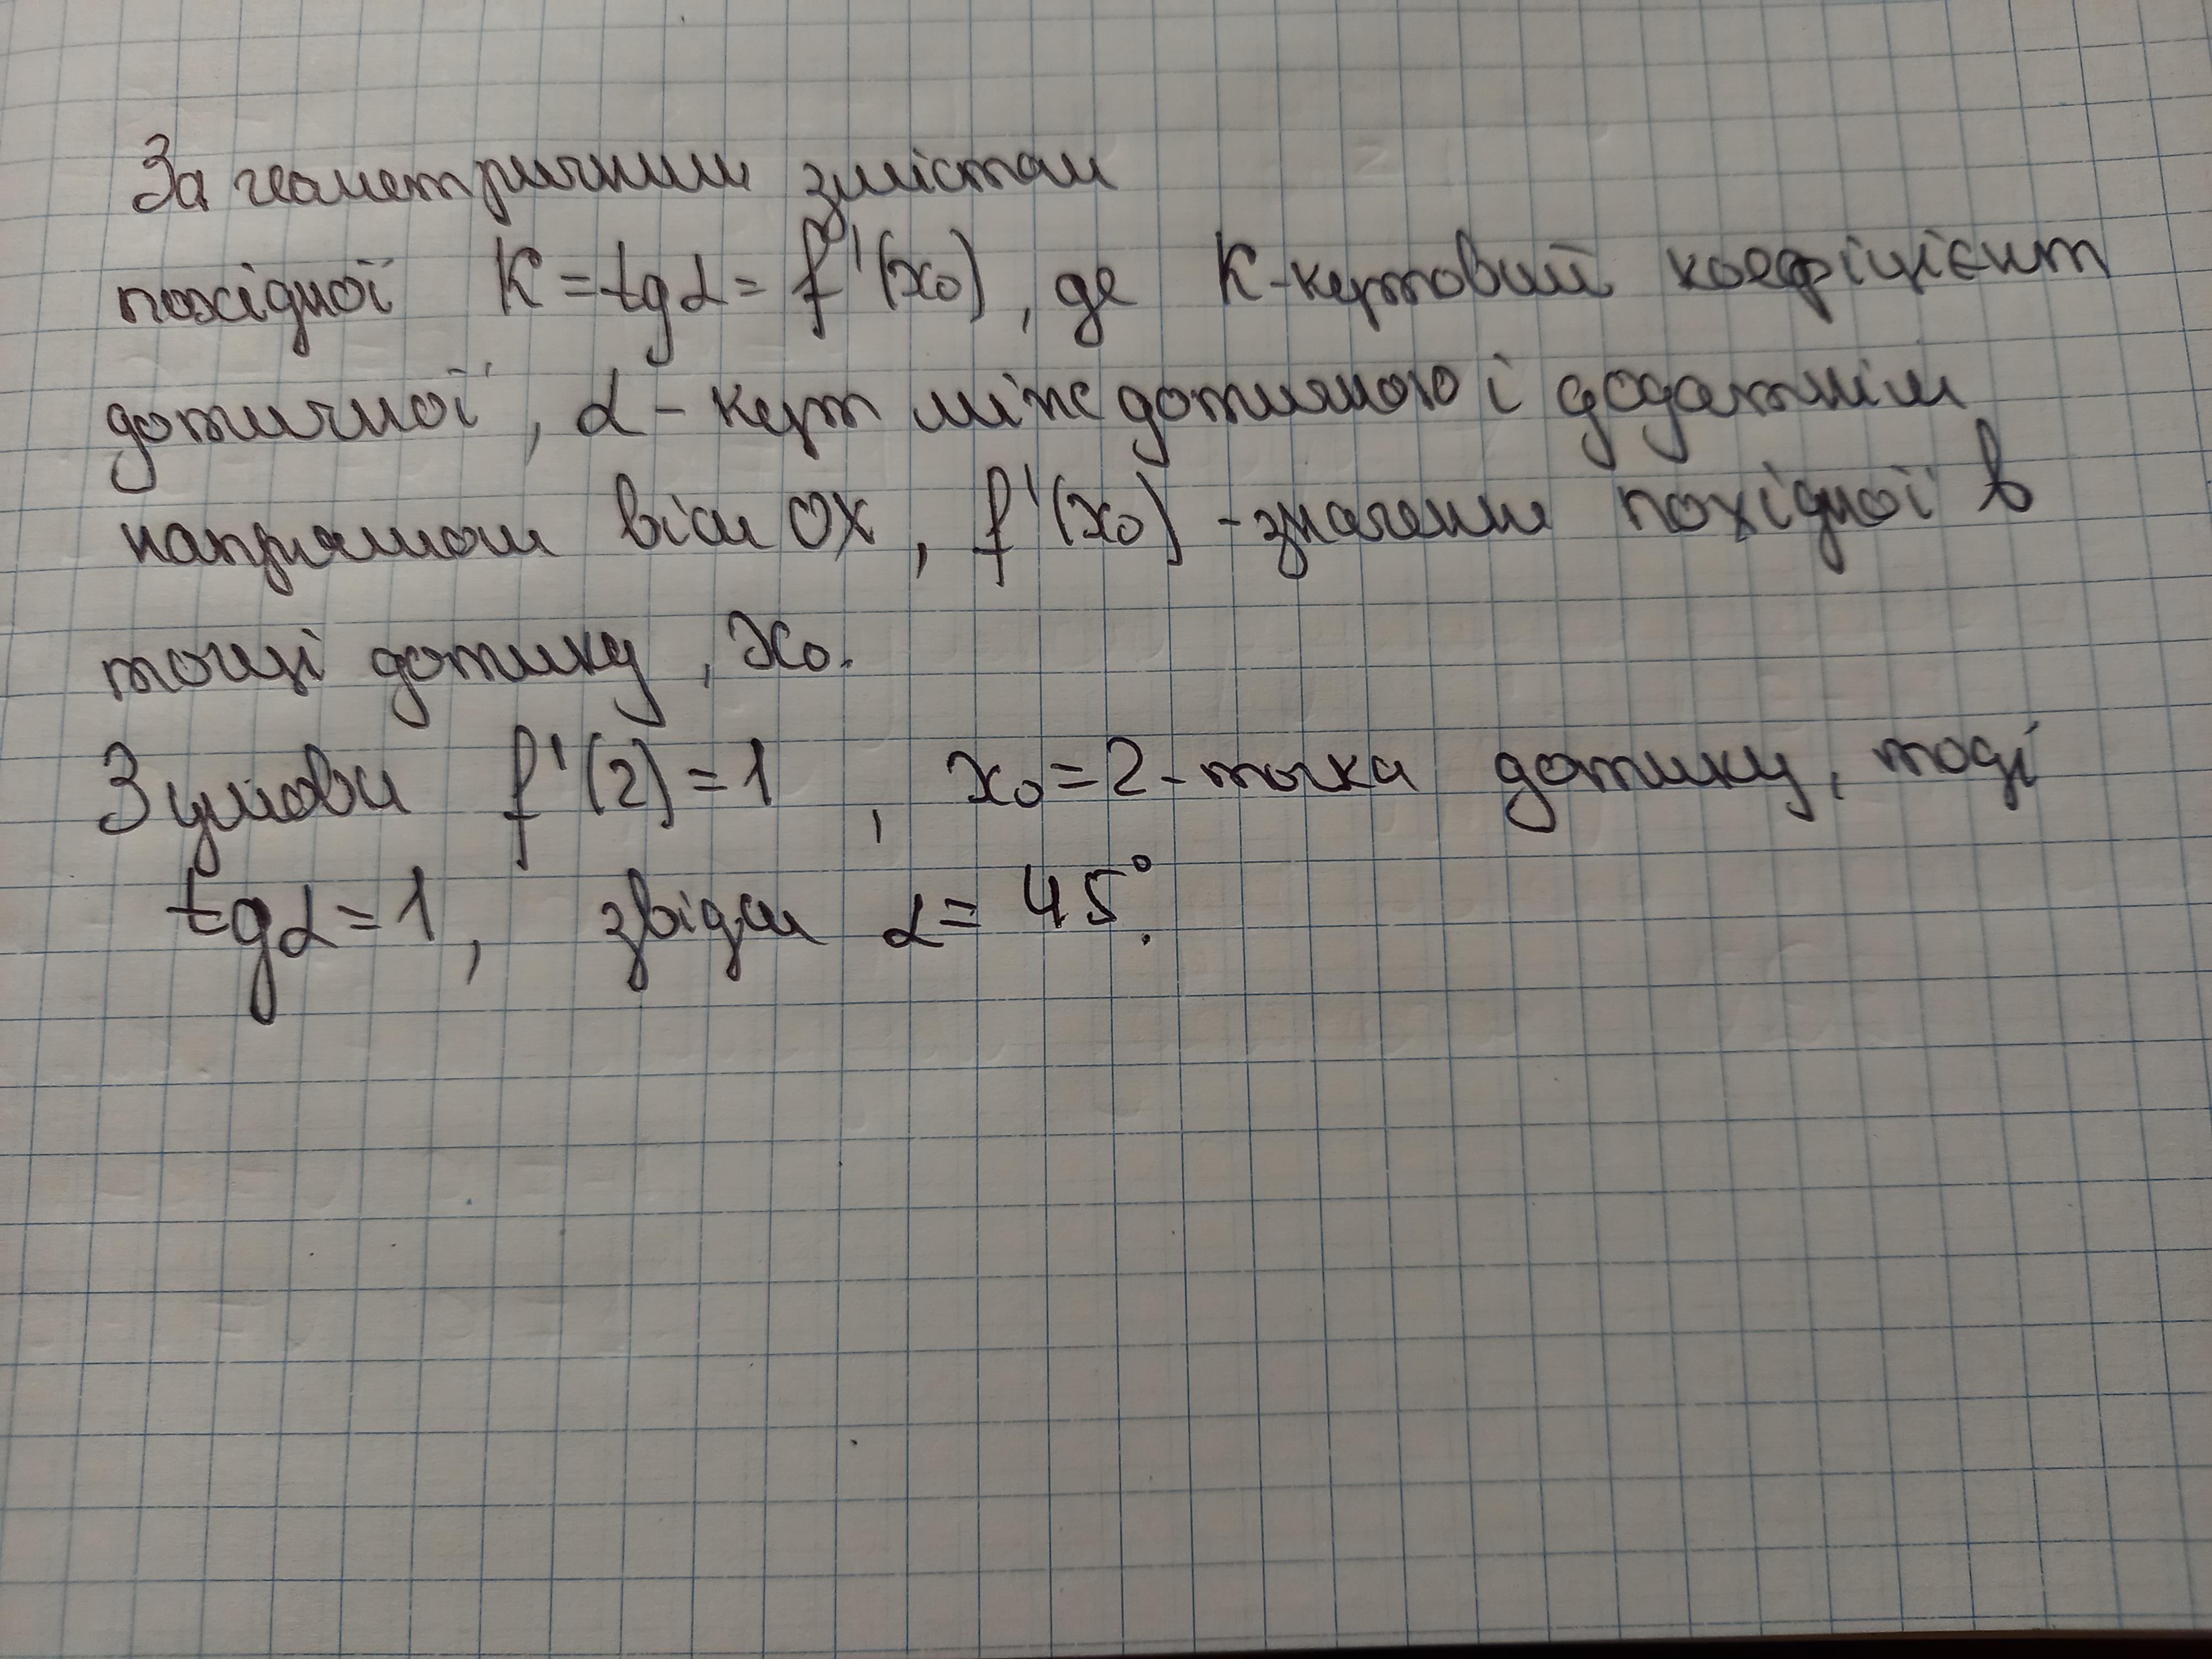 За геометричним змістом
похідної K = tg α = f'(x₀), де K-кутовий коефіцієнт
дотичної, α - кут між дотичною і додатнім
напрямом віси OX, f'(x₀) - значення похідної в
точці дотику, x₀.
З умови f'(2) = 1, x₀ = 2 - точка дотику, тоді
tg α = 1, звідси α = 45°.